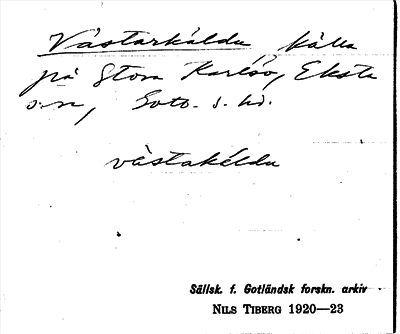 Västarkäldu, källa
på Stora Karlsö, Eksta
s:n, Gotl. s. hd.
västakéldu
Sällsk. f. Gotländsk forskn. arkiv
NILS TIBERG 1920—23